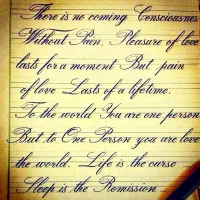 There is no coming Consciousnes
Without Pain. Pleasure of love
lasts for a moment But pain
of love Lasts of a lifetime.
To the world You are one person
But to One Person you are love
the world. Life is the curse
Sleep is the Remission ...